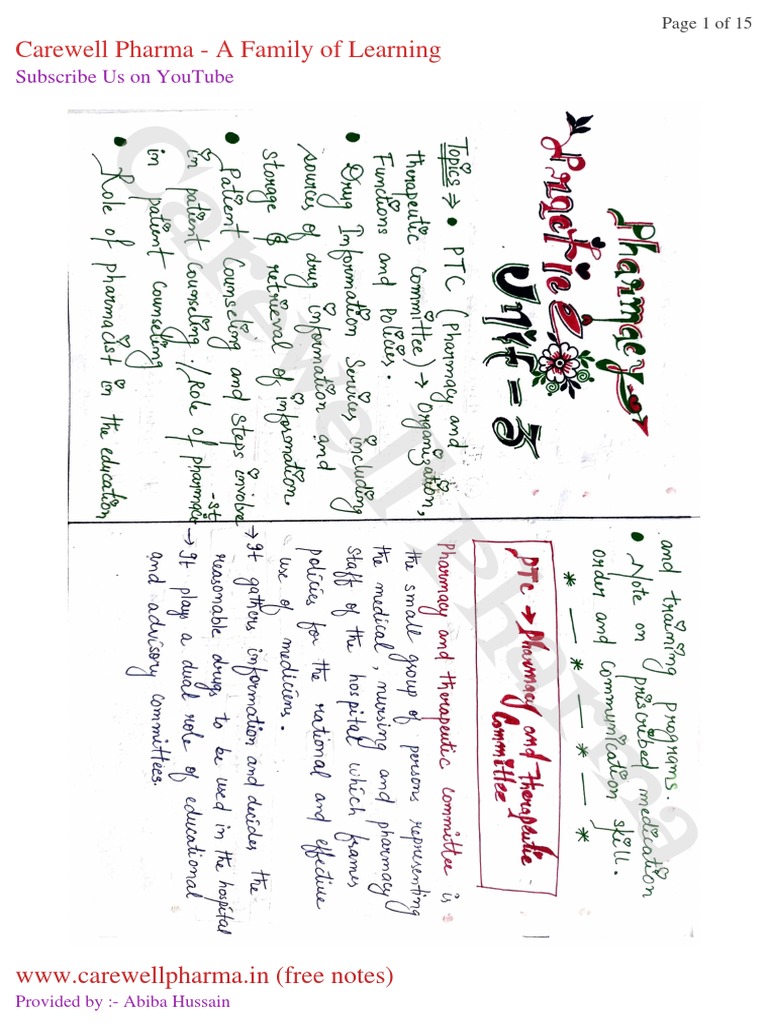 Page 1 of 15
Carewell Pharma - A Family of Learning
Subscribe Us on YouTube
Pharmacy
Practice
Unit-3
Topics ⇒ • PTC (Pharmacy and
therapeutic committee) → Organisation,
Functions and Policies.
• Drug Information Services including
sources of drug information and
storage & retrieval of information.
• Patient Counseling and steps involve
in patient counseling. / Role of pharmaci-st
in patient counseling
• Role of pharmacist in the education
and training programs.
• Note on prescribed medication
order and communication skill.
* — * — * — *
PTC → Pharmacy and Therapeutic
Committee
Pharmacy and therapeutic committee is
the small group of persons representing
the medical, nursing and pharmacy
staff of the hospital which frames
policies for the rational and effective
use of mediciens.
→ It gathers information and decides the
reasonable drugs to be used in the hospital
→ It plays a dual role of educational
and advisory committees.
Carewell Pharma
www.carewellpharma.in (free notes)
Provided by :- Abiba Hussain